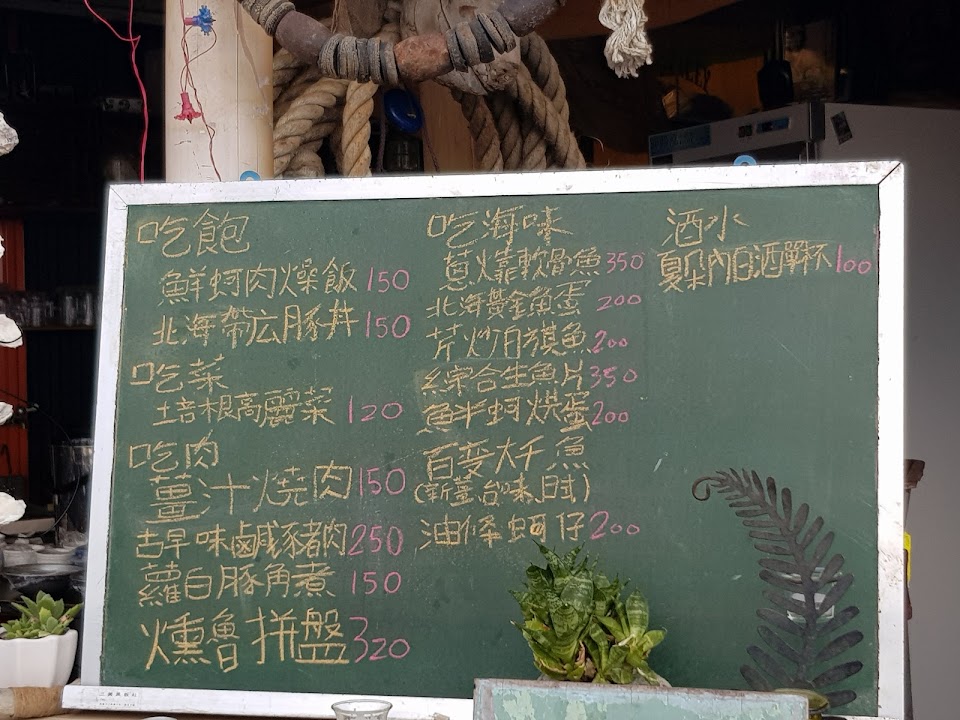 吃飽
鮮蚵肉燥飯 150
北海帶広豚丼 150
吃菜
培根高麗菜 120
吃肉
薑汁燒肉 150
古早味鹹豬肉 250
蘿白豚角煮 150
燻魯拼盤 320
吃海味
蔥㸆軟骨魚 350
北海黃金魚蛋 200
芹炒白鏌魚 200
綜合生魚片 350
鮮蚵烘蛋 200
百变大千魚
(新薑、台味、日式)
油條蚵仔 200
酒水
夏朵內白酒單杯 100